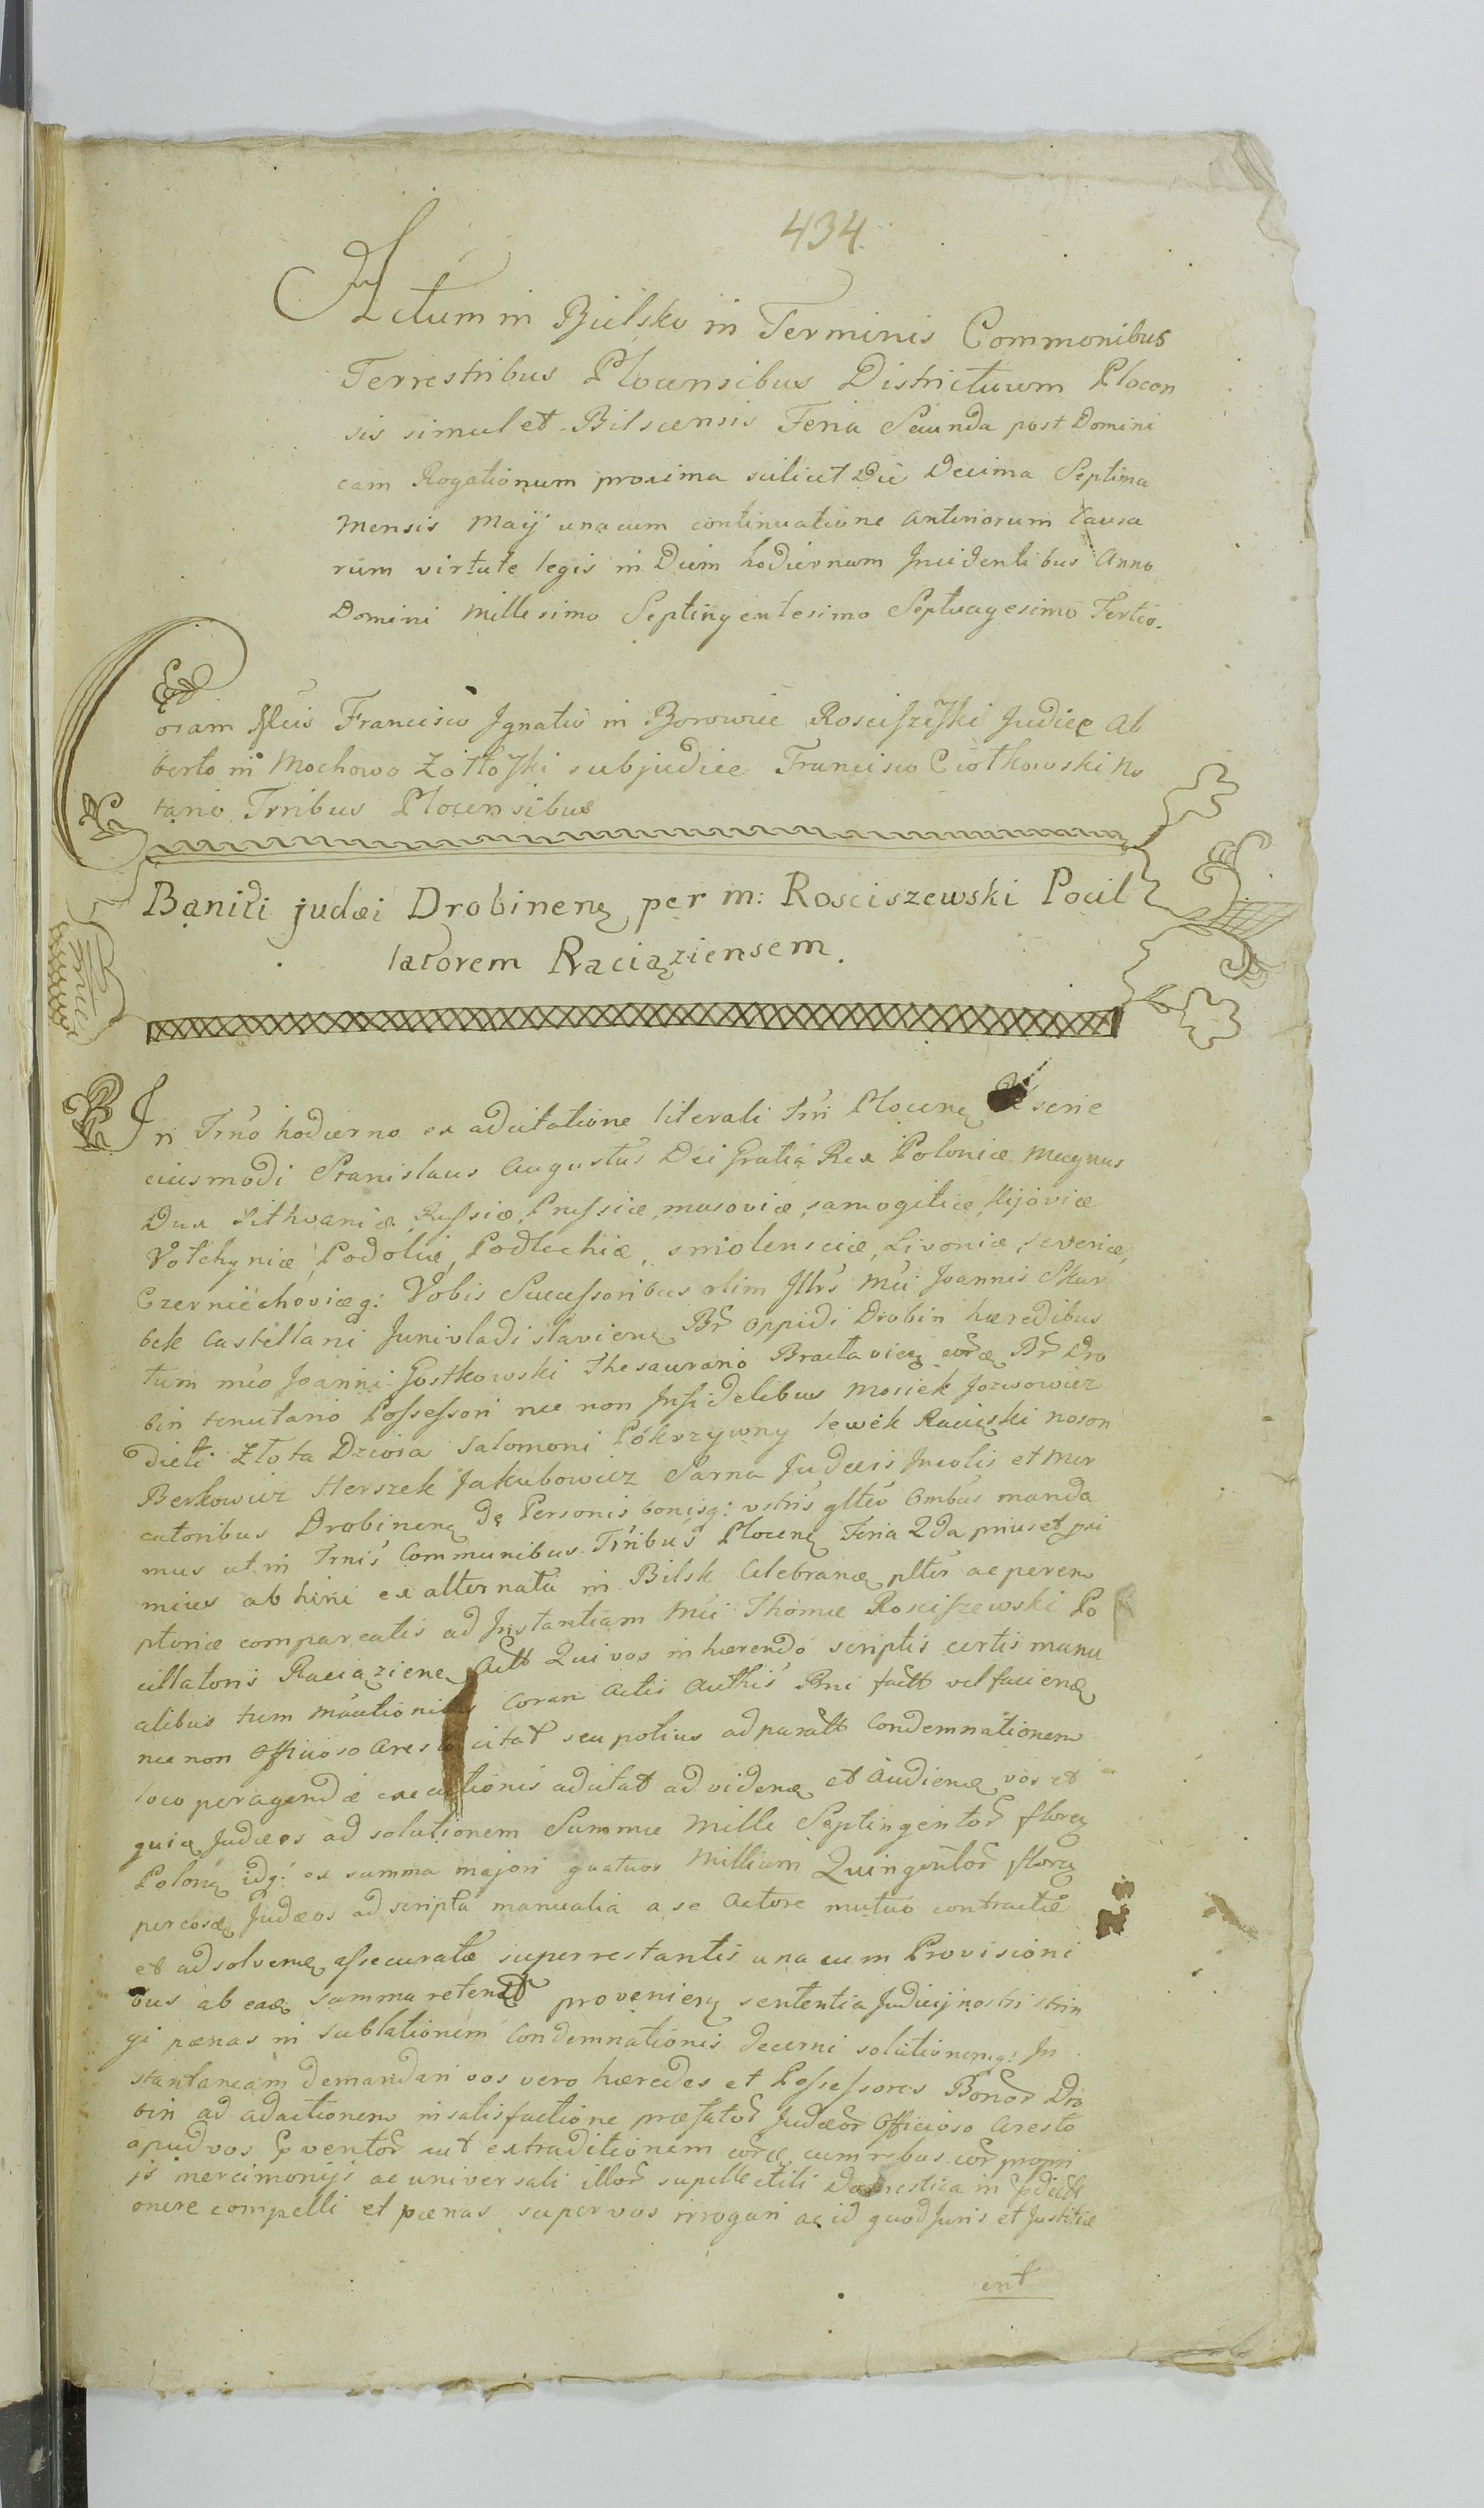 434.
Actum in Bielsko in Terminis Commonibus
Terrestribus Plocensibus Districtuum Plocen
sis simul et Bilscensis Feria Secunda post Domini
cam Rogationum proxima scilicet Die Decima Septima
Mensis Maij unacum continuatione Anteriorum Causa
rum virtute legis in Diem hodiernum Incidentibus Anno
Domini Millesimo Septingentesimo Septuagesimo Tertio.
Coram Francisco Ignatio in Borowice Rosciszeski Judice Al
berto in Mochowo Żółtoski subjudice Francisco Ciołkowski No
tario Trribus Plocensibus
Baniti judæi Drobinenę per m: Rosciszewski Pocil
latorem Raciąziensem.
In Trno hodierno ex adcitatione literali Trri Plocenę serie
eiusmodi Stanislaus Augustus Dei Gratia Rex Poloniæ Magnus
Dux Lithvaniæ, Russiæ, Prussiæ, masoviæ, samogitiæ, Kijoviæ
Volhyniæ, Podoliæ, Podlachiæ, smolensciæ, Livoniæ, severiæ,
Czerniechoviæq: Vobis Successoribus olim Illrs Mci Joannis Skar
bek Castellani Junivladislavienę Br oppidi Drobin hæredibus
tum mco Joanni Gostkowski Thesaurario Braclavienę eorę Br Dro
bin tenutario Possessori nec non Infidelibus Mosiek Jozwowicz
dicti Złota Dziora Salomoni Pokrzywny Lewek Racięski noson
Berkowicz Herszek Jakubowicz Sarna Judæis Incolis et Mer
catoribus Drobinenę de Personis bonisq: vstris glter ombus manda
mus ut in Trnis Communibus Trribus Plocenę Feria 2da prius et pri
mius ab hinc ex alternata in Bilsk Celebranę plter ac perem
ptorie compareatis ad Instantiam Mci Thomæ Rosciszewski Po
cillatoris Raciązienę Actt Qui vos inhærendo scriptis certis manu
alibus tum Coram Actis Authis Pni factt vel facienę
nec non Officioso Aresto citat seu potius ad paratt Condemnationem
loco peragendæ executionis adcitat ad videnę et Audienę vos et
quia Judæos ad solutionem Summæ Mille Septingentor florę
Polonę idq: ex summa majori quatuor Millium Quingentor florę
per eosę Judæos ad scripta manualia a se Actore mutuo contractæ
et adsolvenę assecuratæ superrestantis una cum Provisioni
bus ab eaę summa retent provenienę sententia Judicij nostri strin
gi pænas in sublationem Condemnationis decerni solutionemq: In
stantaneam demandari vos vero hæredes et Possessores Bonor Dro
bin ad adactionem in satisfactione præfator Judæor Officioso Aresto
apud vos ventor aut extraditionem eorę cum rebus eor propri
js mercimonijs ac universali illor supellectili domestica in
onere compelli et pænas super vos irrogari ac id quod Juris et Justitiæ
erit